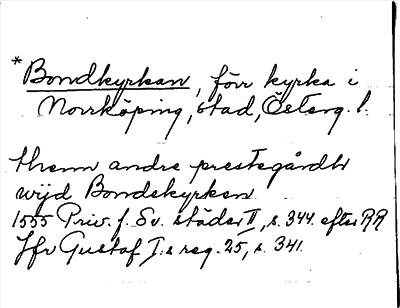 *Bondkyrkan, förr kyrka i
Norrköping, stad, Österg. l.
thenn andre prestegårdh
wijd Bondekyrken
1555 Priv. f. Sv. städer II, s. 344. efter RR
Jfr Gustaf I:s reg. 25, s. 341.